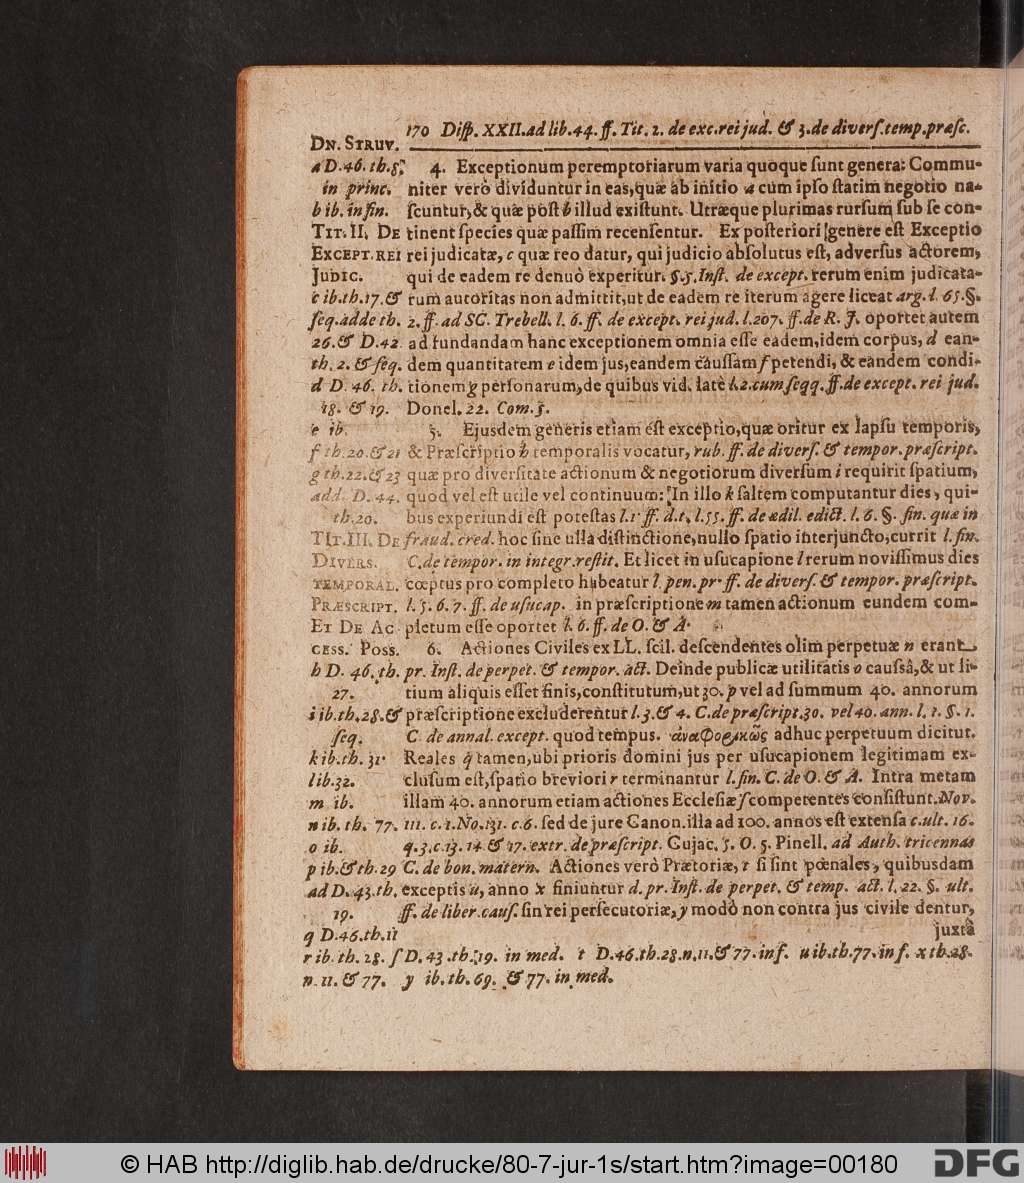 170 Disp. XXII. ad lib. 44. ff. Tit. 2. de exc. rei jud. & 3. de divers. temp. præsc.
DN. STRUV.
a D. 46. th. 8.
in princ.
b ib. in fin.
TIT. II. DE
EXCEPT. REI
JUDIC.
c ib. th. 17. &
seq. adde th.
26. & D. 42.
th. 2. & seq.
d D. 46. th.
18. & 19.
e ib.
f th. 20. & 21
g th. 22. & 23
add. D. 44.
th. 20.
TIT. III. DE
DIVERS.
TEMPORAL.
PRÆSCRIPT.
ET DE AC
CESS. POSS.
h D. 46. th.
27.
i ib. th. 28. &
seq.
k ib. th. 31.
lib. 32.
m ib.
n ib. th. 77.
o ib.
p ib. & th. 29
ad D. 43. th.
19.
q D. 46. th. 11
4. Exceptionum peremptoriarum varia quoque sunt genera: Commu-
niter verò dividuntur in eas, quæ ab initio a cum ipso statim negotio na-
scuntur, & quæ pòst b illud existunt. Utræque plurimas rursum sub se con-
tinent species quæ passim recensentur. Ex posteriori genere est Exceptio
rei judicatæ, c quæ reo datur, qui judicio absolutus est, adversus actorem,
qui de eadem re denuò experitur. §. 5. Inst. de except. rerum enim judicata-
rum autoritas non admittit, ut de eadem re iterum agere liceat arg. l. 65. §.
2. ff. ad SC. Trebell. l. 6. ff. de except. rei jud. l. 207. ff. de R. J. oportet autem
ad fundandam hanc exceptionem omnia esse eadem, idem corpus, d ean-
dem quantitatem e idem jus, eandem caussam f petendi, & eandem condi-
tionem g personarum, de quibus vid. latè l. 2. cum seqq. ff. de except. rei jud.
Donel. 22. Com. 5.
5. Ejusdem generis etiam est exceptio, quæ oritur ex lapsu temporis,
& Præscriptio h temporalis vocatur, rub. ff. de divers. & tempor. præscript.
quæ pro diversitate actionum & negotiorum diversum i requirit spatium,
quod vel est utile vel continuum: In illo k saltem computantur dies, qui-
bus experiundi est potestas l. 1. ff. d. t. l. 55. ff. de ædil. edict. l. 6. §. fin. quæ in
fraud. cred. hoc sine ulla distinctione, nullo spatio interjuncto, currit l. fin.
C. de tempor. in integr. restit. Et licet in usucapione l rerum novissimus dies
cœptus pro completo habeatur l. pen. pr. ff. de divers. & tempor. præscript.
l. 5. 6. 7. ff. de usucap. in præscriptione m tamen actionum eundem com-
pletum esse oportet l. 6. ff. de O. & A.
6. Actiones Civiles ex LL. scil. descendentes olim perpetuæ n erant
pr. Inst. de perpet. & tempor. act. Deinde publicæ utilitatis o caussâ, & ut li-
tium aliquis esset finis, constitutum, ut 30. p vel ad summum 40. annorum
præscriptione excluderentur l. 3. & 4. C. de præscript. 30. vel 40. ann. l. 1. §. 1.
C. de annal. except. quod tempus. ἀναφορικῶς adhuc perpetuum dicitur.
Reales q tamen, ubi prioris domini jus per usucapionem legitimam ex-
clusum est, spatio breviori r terminantur l. fin. C. de O. & A. Intra metam
illam 40. annorum etiam actiones Ecclesiæ s competentes consistunt. Nov.
111. c. 1. No. 131. c. 6. sed de jure Canon. illa ad 100. annos est extensa c. ult. 16.
q. 3. c. 13. 14. & 17. extr. de præscript. Cujac. 5. O. 5. Pinell. ad Auth. tricennas
C. de bon. matern. Actiones verò Prætoriæ, t si sint pœnales, quibusdam
exceptis u, anno x finiuntur d. pr. Inst. de perpet. & temp. act. l. 22. §. ult.
ff. de liber. caus. sin rei persecutoriæ, y modò non contra jus civile dentur,
juxtà
r ib. th. 28. s D. 43. th. 19. in med. t D. 46. th. 28. n. 11. & 77. inf. u ib. th. 77. inf. x th. 28.
n. 11. & 77. y ib. th. 69. & 77. in med.
© HAB http://diglib.hab.de/drucke/80-7-jur-1s/start.htm?image=00180
DFG